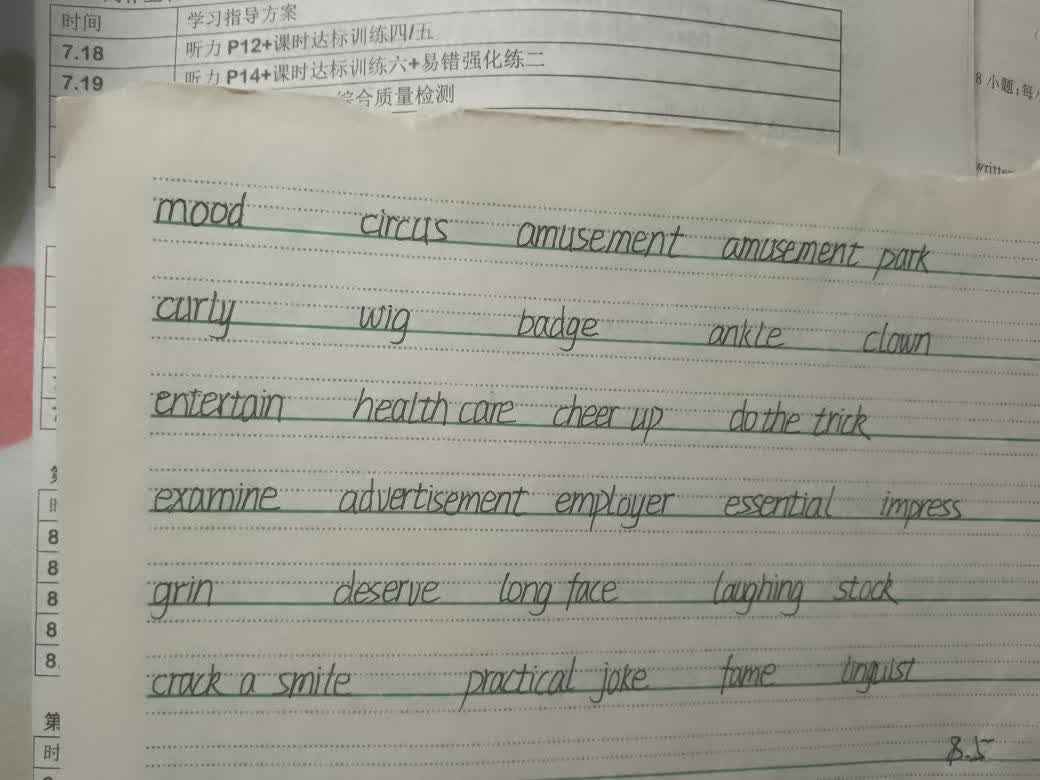 时间 学习指导方案
7.18 听力 P12+课时达标训练四/五
7.19 听力 P14+课时达标训练六+易错强化练二
综合质量检测
8 小题;每
mood circus amusement amusement park
curly wig badge ankle clown
entertain health care cheer up do the trick
examine advertisement employer essential impress
grin deserve long face laughing stock
crack a smile practical joke fame linguist
8.5
8
8
8
8
8
第
时